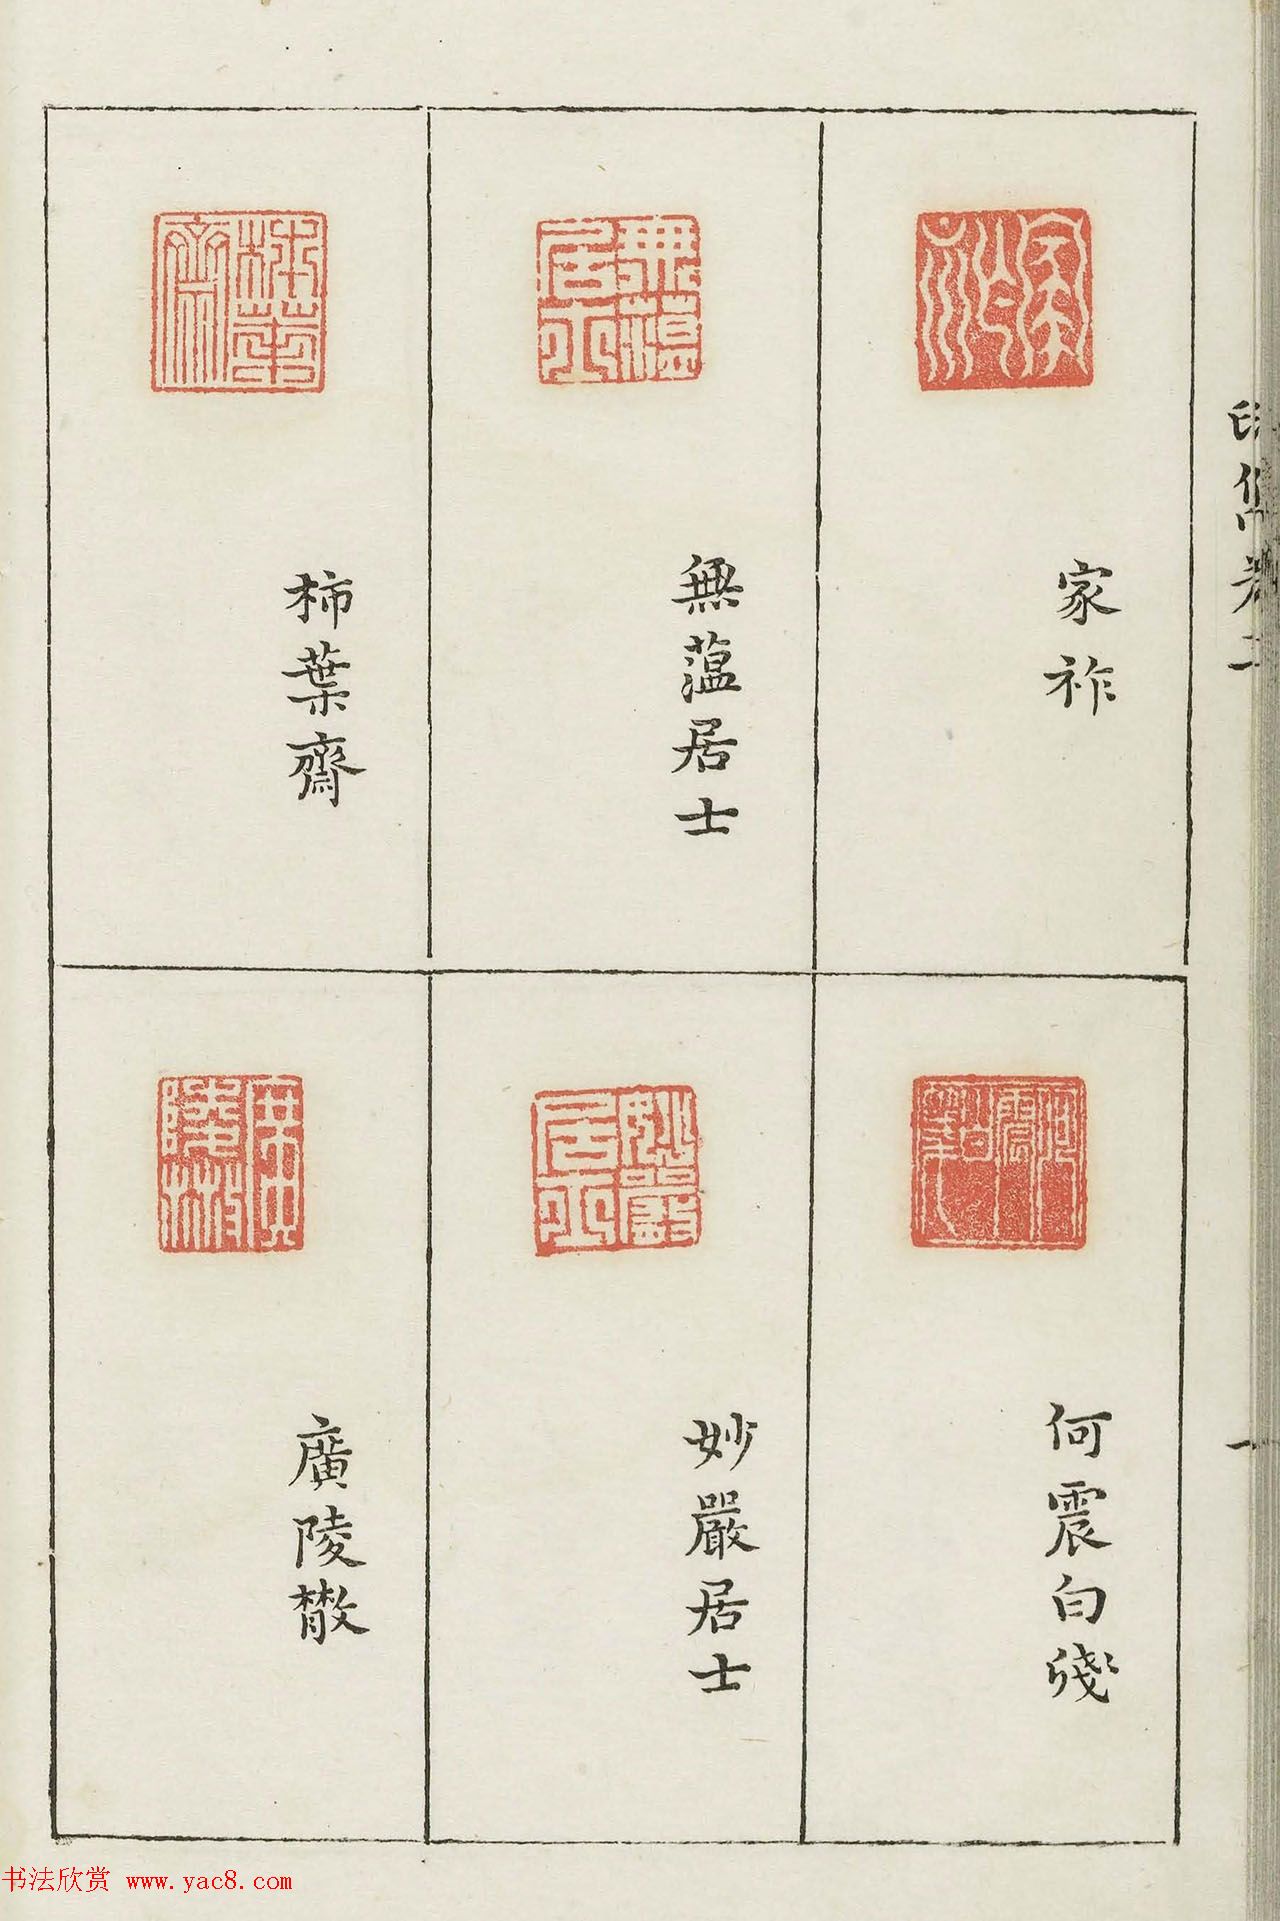 家祚
無薀居士
柿葉齋
何震白牋
妙嚴居士
廣陵散
书法欣赏 www.yac8.com